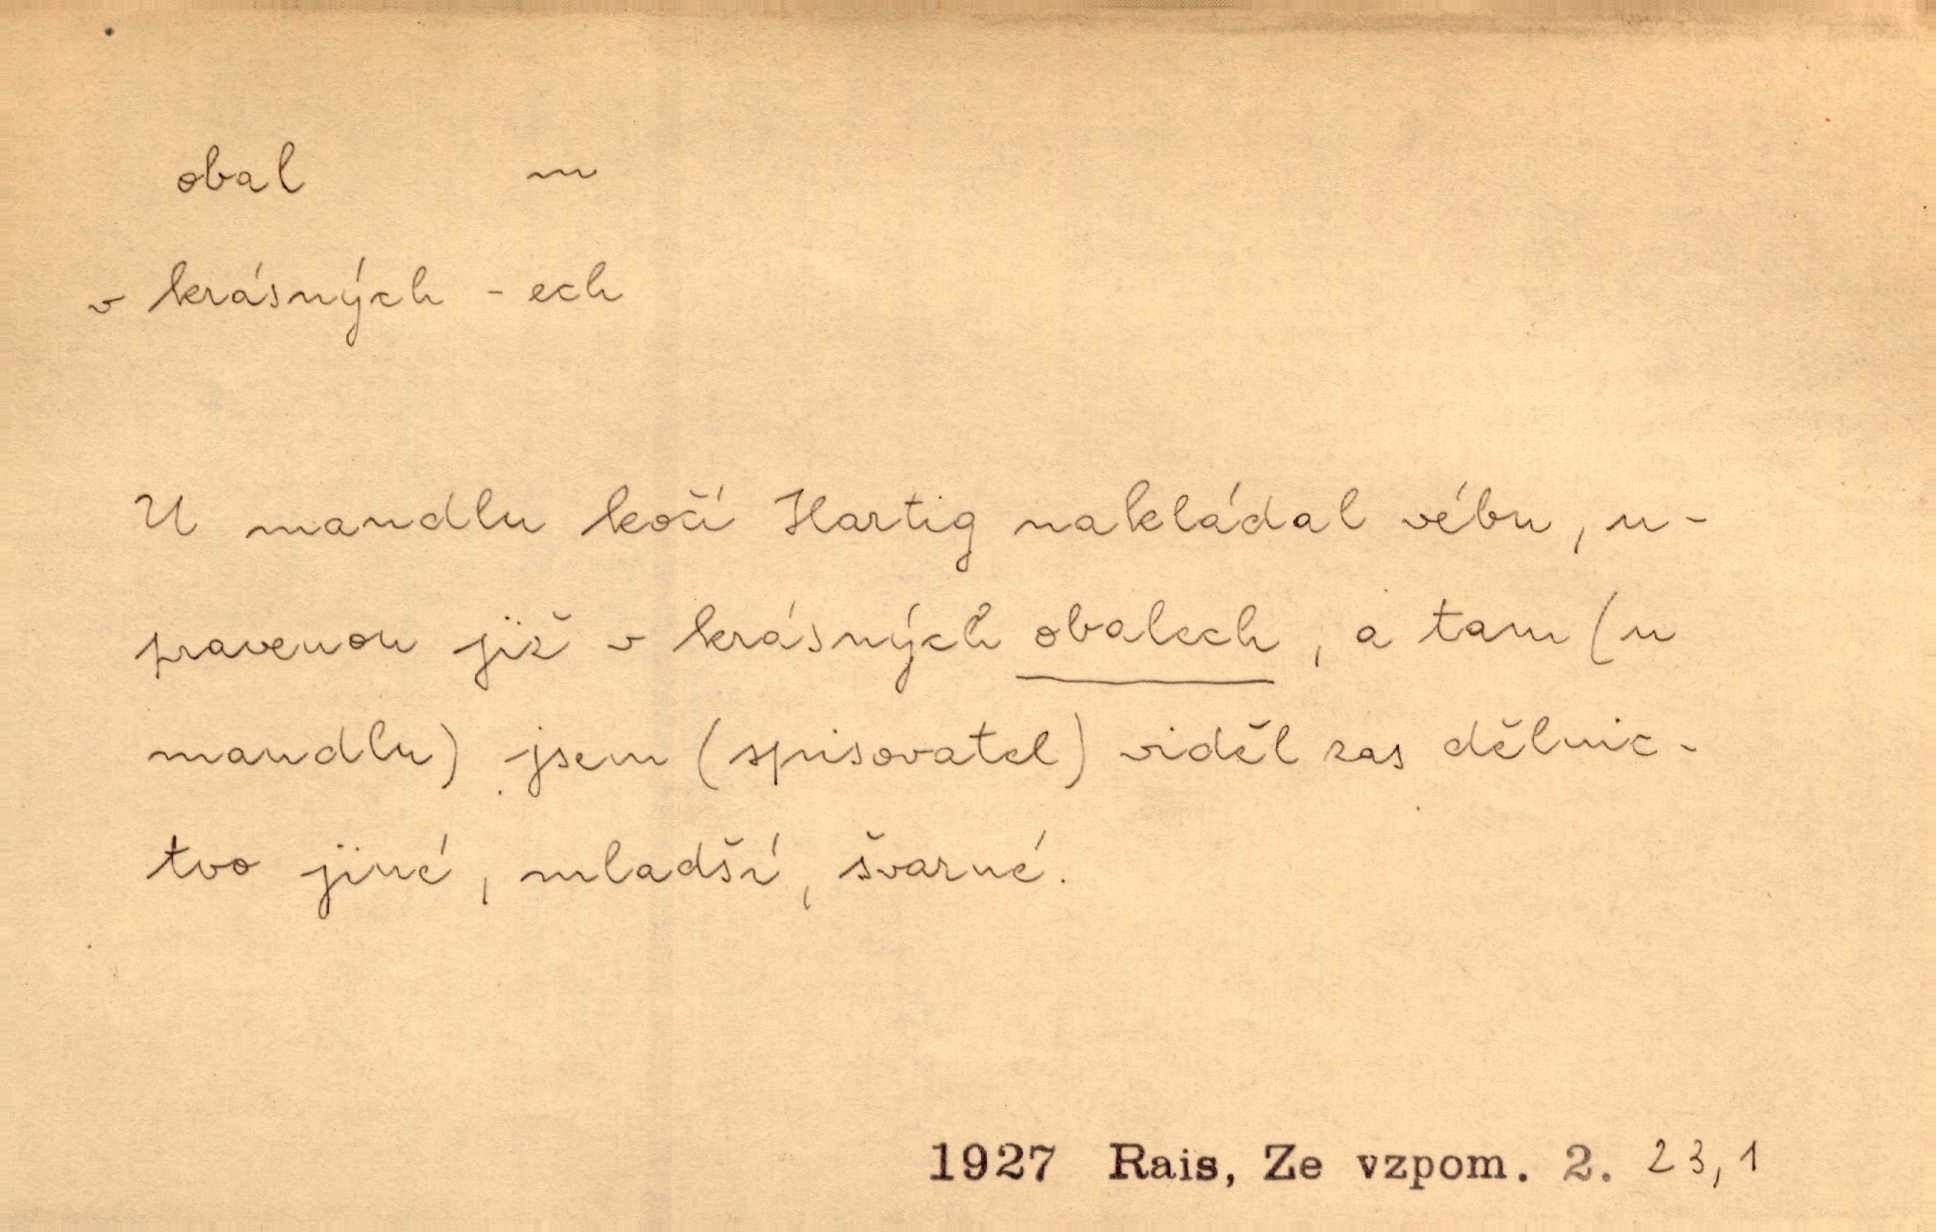 obal m
v krásných -ech
U mandlu kočí Hartig nakládal vébu, u-
pravenou již v krásných obalech, a tam (u
mandlu) jsem (spisovatel) viděl zas dělnic-
tvo jiné, mladší, švarné.
1927 Rais, Ze vzpom. 2. 23,1